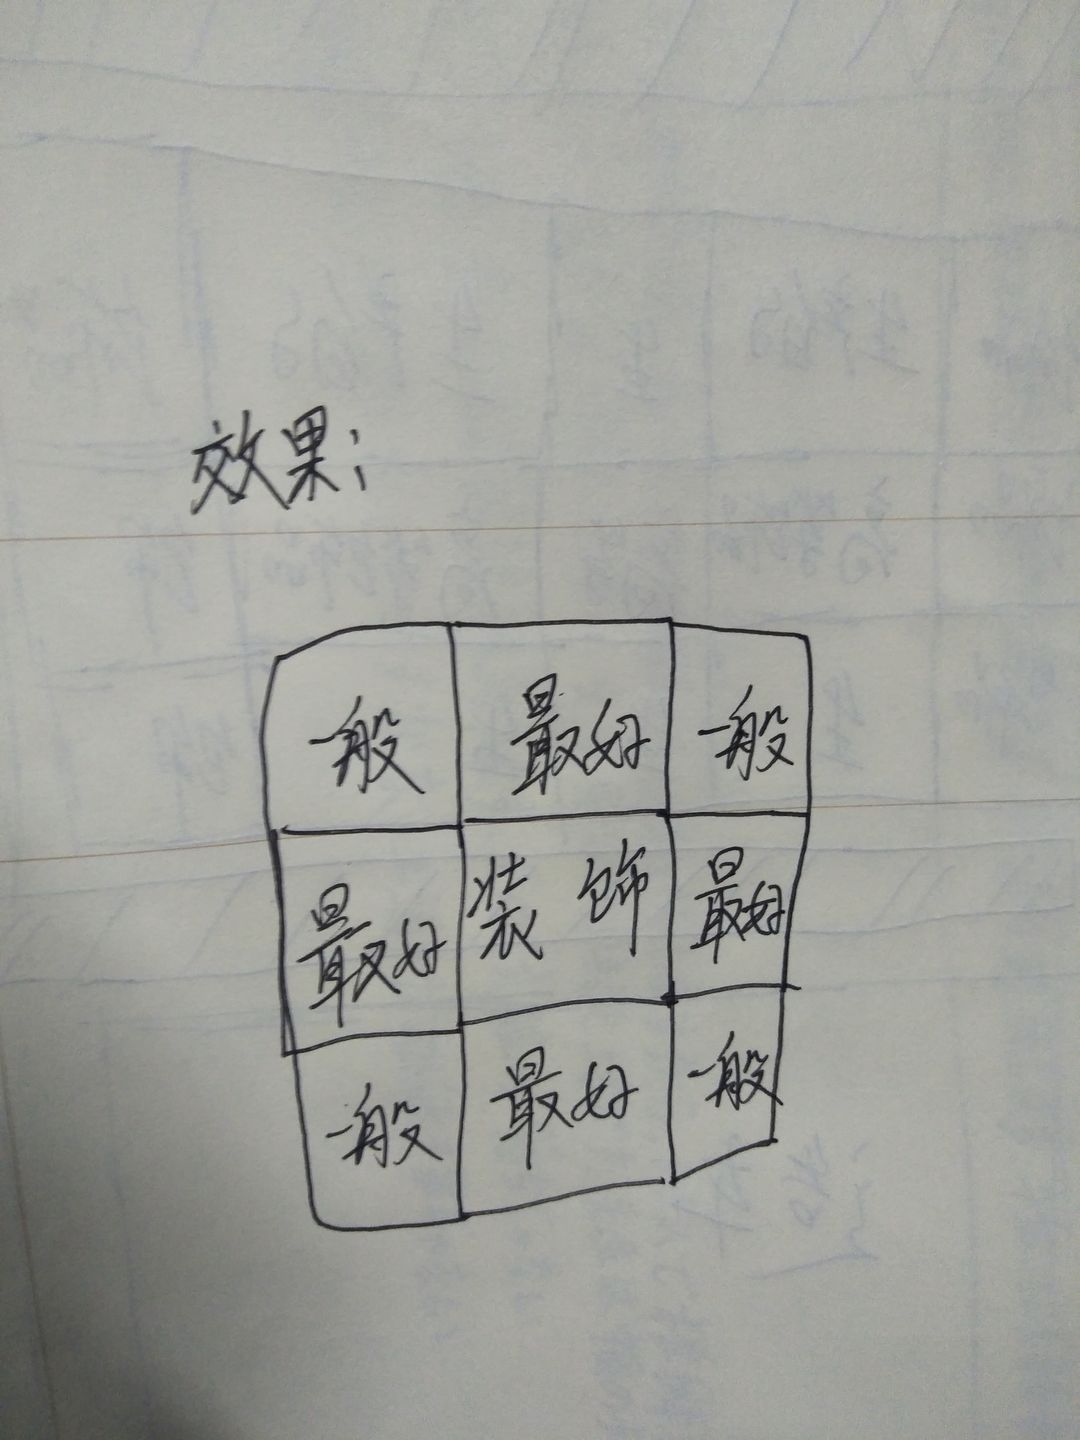 效果:
一般 最好 一般
最好 装饰 最好
一般 最好 一般